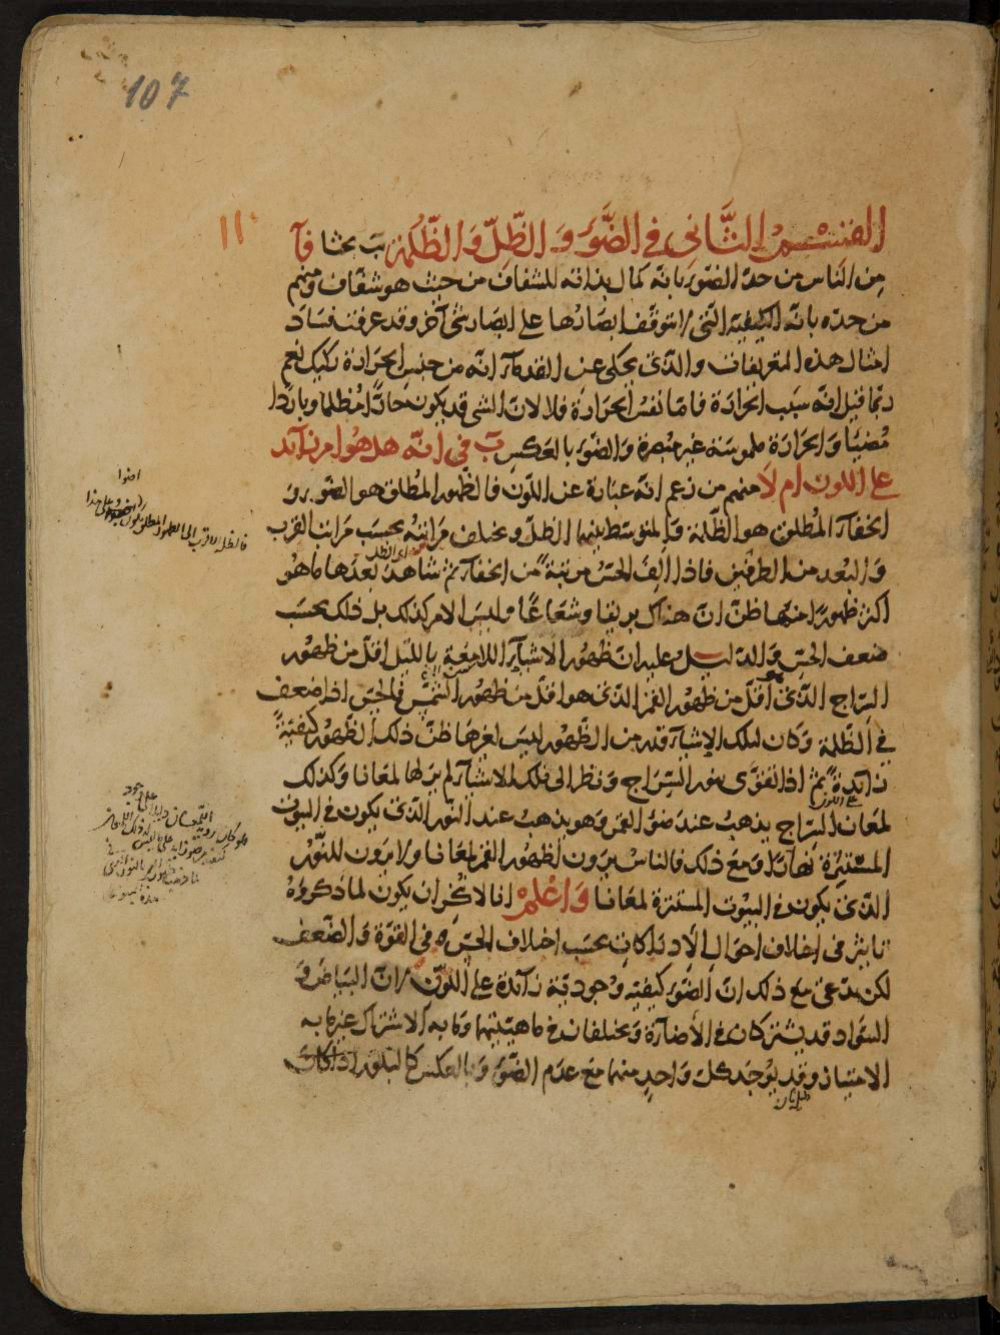 107
11
القسم الثاني في الضوء و الظل و الظلمة ب بحثا فآ
من الناس من حد الضوء بانه كمال بذاته للشفاف من حيث هو شفاف ومنهم
من حده بانه الكيفية التي لا تتوقف ابصارها على ابصار شئ آخر وقد عرفت فساد
امثال هذه التعريفات والذي يحكى عن القدمآء انه من جنس الحرارة ركيك نعم
ربما قيل انه سبب الحرارة فاما نفس الحرارة فلا لان الشى قد يكون حارا مظلما وباردا
مضيئا والحرارة ملموسة غير مبصرة والضوء بالعكس ب في انه هل هوا مر زآئد
على اللون ام لا منهم من زعم انه عبارة عن اللون فالظهور المطلق هو الضوء و
الخفآء المطلق هو الظلمة والمتوسط بينهما الظل ويختلف مراتبه بحسب مراتب القرب
اى الظل
والبعد من الطرفين فاذا الف الحس مرتبة من الخفآء ثم شاهد بعدها ما هو
اكثر ظهورا منها ظن ان هناك بريقا وشعاعا وليس الامر كذلك بل ذلك بحسب
ضعف الحس والدليل عليه ان ظهور الاشيآء اللامعة بالليل اقل من ظهور
السراج الذي هو اقل من ظهور القمر الذي هو اقل من ظهور الشمس فالحس اذا ضعف
في الظلمة وكان لتلك الاشيآء قدر من الظهور ليس لغيرها ظن ذلك الظهور كيفية
زآئدة ثم اذا تقوى بنور السراج ونظر الى تلك الاشيآء لم ير لها لمعانا وكذلك
على اللون
لمعان السراج يذهب عند ضوء القمر وهو يذهب عند النور الذي يكون في البيوت
المستنيرة نهارا ومع ذلك فالناس يرون لظهور القمر لمعانا ولا يرون للنور
الذي يكون في البيوت المستنيرة لمعانا واعلم انا لا ننكر ان يكون لما ذكروه
تاثير في اختلاف احوال الادراكات بحسب اختلاف الحس في القوة والضعف
لكن ندعى مع ذلك ان الضوء كيفية وجودية زآئدة على اللون لان البياض و
السواد قد يشتركان في الاضآءة ويختلفان في ماهيتيهما وما به الاشتراك غير ما به
الامتياز وقد يوجد كل واحد منهما مع عدم الضوء وبالعكس كالبلور اذا كان